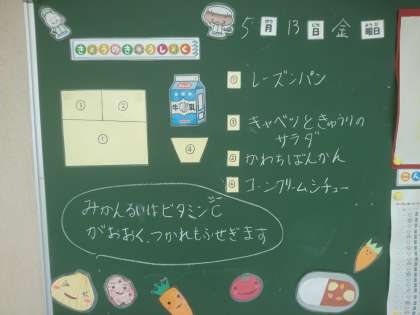 5月13日金曜日
きょうのきゅうしょく
③ ②
①
牛乳
④
① レーズンパン
③ キャベツときゅうりの
サラダ
② かわちばんかん
④ コーンクリームシチュー
みかんるいはビタミンC
がおおく、つかれもふせぎます